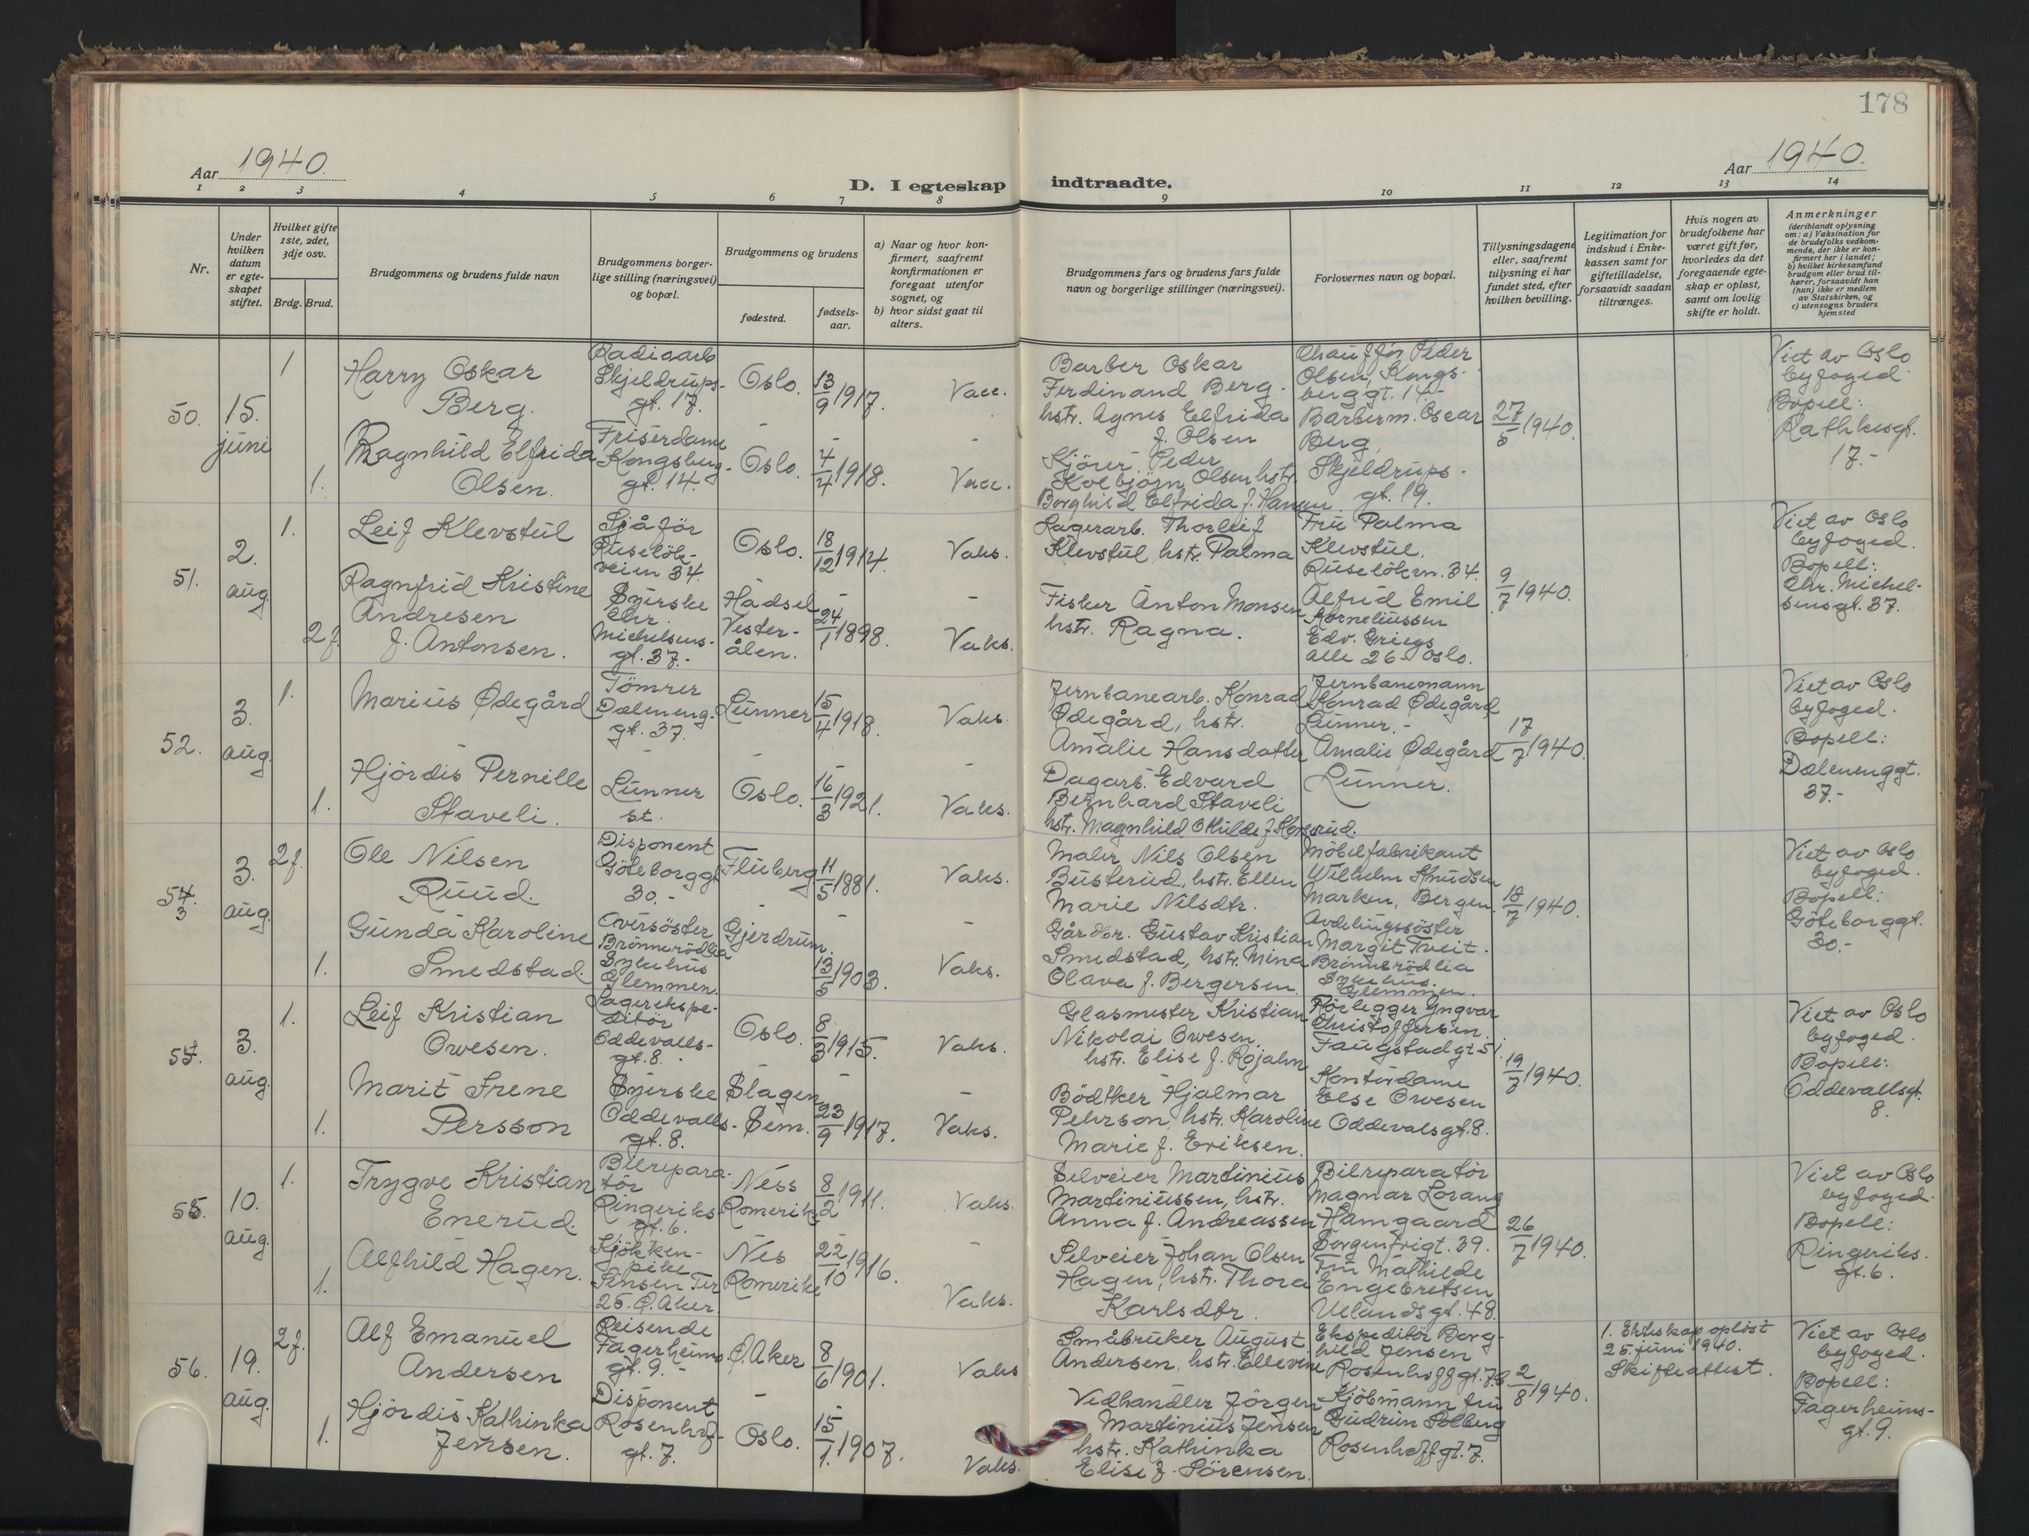 178
Aar 1940.
Aar 1940.
D. I egteskap indtraadte.
1 2 3 4 5 6 7 8 9 10 11 12 13 14
Nr.
Under hvilken datum er egteskapet stiftet.
Hvilket gifte 1ste, 2det, 3dje osv.
Brdg. Brud.
Brudgommens og brudens fulde navn
Brudgommens borgerlige stilling (næringsvei) og bopæl.
Brudgommens og brudens
fødested.
fødselsaar.
a) Naar og hvor konfirmert, saafremt konfirmationen er foregaat utenfor sognet, og
b) hvor sidst gaat til alters.
Brudgommens fars og brudens fars fulde navn og borgerlige stillinger (næringsvei).
Forlovernes navn og bopæl.
Tillysningsdagene eller, saafremt tillysning ei har fundet sted, efter hvilken bevilling.
Legitimation for indskud i Enkekassen samt for giftetilladelse, forsaavidt saadan tiltrænges.
Hvis nogen av brudefolkene har været gift før, hvorledes da det foregaaende egteskap er opløst, samt om lovlig skifte er holdt.
Anmerkninger (deriblandt oplysning om: a) Vaksination for de brudefolks vedkommende, der ikke er konfirmert her i landet; b) hvilket kirkesamfund brudgom eller brud tilhører, forsaavidt han (hun) ikke er medlem av Statskirken, og c) utensogns bruders hjemsted
50. 15. juni
1
Harry Oskar Berg.
Radioarb Skjeldrupsgt. 17.
Oslo. 13/9 1917.
Vacc.
Barber Oskar Ferdinand Berg. hstr. Agnes Elfrida f. Olsen
Chauffør Peder Olsen, Kongsberggt. 14.-
Barberm. Oscar Berg, Skjeldrupsgt. 19.
27/5 1940.
Viet av Oslo byfoged. Bopell: Rathkesgt. 17.-
1.
Ragnhild Elfrida Olsen.
Friserdame Kongsberggt. 14.
Oslo. 4/4 1918.
Vacc.
Kjører Peder Kolbjørn Olsen hstr. Borghild Elfrida f. Hansen.
51. 2. aug.
1.
Leif Klevstul
Sjåfør Ruseløkveien 34.
Oslo. 18/12 1914.
Vaks.
Lagerarb. Thorleif Klevstul, hstr. Palma
Fru Palma Klevstul. Ruseløkvn. 34.
Alfrid Emil Korneliussen Edv. Griegs alle 26 Oslo.
9/7 1940.
Viet av Oslo byfoged. Bopell: Chr. Michelsensgt. 37.
2f.
Ragnfrid Kristine Andresen f. Antonsen.
Syerske Chr. Michelsensgt. 37.-
Hadsel Vesterålen. 24/1 1898.
Vaks.
Fisker Anton Monsen hstr. Ragna.
52. 3. aug.
1.
Marius Ødegård
Tømrer Dælenenggt. 37.
Lunner 15/4 1918.
Vaks.
Jernbanearb. Konrad Ødegård, hstr. Amalie Hansdatter
Jernbanemann Konrad Ødegård Lunner.-
Amalie Ødegård Lunner.
17/7 1940.
Viet av Oslo byfoged. Bopell: Dælenenggt. 37.-
1.
Hjördis Pernille Staveli.
Lunner st.
Oslo. 16/3 1921.
Vaks.
Dagarb. Edvard Bernhard Staveli hstr. Magnhild Othilde f.
53. 3. aug.
2f.
Ole Nilsen Ruud.
Disponent Göteborggt 30.-
Fluberg 11/5 1881.
Vaks.
Maler Nils Olsen Busterud, hstr. Ellen Marie Nilsdtr.
Møbelfabrikant Wilhelm Knudsen Marken, Bergen.
Avdelingssöster Margit Tveit. Brønnerödlia Sykehus. Glemmen.
18/7 1940.
Viet av Oslo byfoged. Bopell: Göteborggt. 30.-
1.
Gunda Karoline Smedstad.
Oversöster Brönnerödlia Sykehus Glemmen.
Gjerdrum. 13/5 1903.
Vaks.
Gårdbr. Gustav Kristian Smedstad, hstr. Mina Olava f. Bergersen.
54. 3. aug.
1.
Leif Kristian Owesen.
Lagerekspeditör Oddevallsgt. 8.
Oslo. 8/3 1915.
Vaks.
Glasmester Kristian Nikolai Owesen. hstr. Elise f. Röjahn
Rørlegger Yngvar Christoffersen. Faugstadgt 51.
Kontordame Else Owesen Oddevalsgt. 8.
19/7 1940.
Viet av Oslo byfoged. Bopell: Oddevallsgt. 8.
1.
Marit Irene Persson
Syerske Oddevallsgt. 8.
Slagen - Sem. 23/9 1917.
Vaks.
Bödtker Hjalmar Pehrson, hstr. Karoline Marie f. Eriksen.
55. 10. aug.
1.
Trygve Kristian Enerud.
Bilreparatör Ringeriksgt. 6.
Ness Romerike 8/2 1911.
Vaks.
Selveier Martinius Martiniussen, hstr. Anna f. Andreassen
Bilreparatör Magnar Lorang Hamgaard Borgenfrigt. 39.
Fru Mathilde Engebretsen Uelandsgt. 48.
26/7 1940.
Viet av Oslo byfoged. Bopell: Ringeriksgt. 6.
1.
Alfhild Hagen.
Kjökkenpike Sinsen Ter 25. Ø. Aker.
Nes Romerike 22/10 1916.
Vaks.
Selveier Johan Olsen Hagen, hstr. Thora Karlsdtr.
56. 19. aug.
2f.
Alf Emanuel Andersen
Reisende Fagerheimsgt. 9.-
Ø. Aker 8/6 1901.
Vaks
Småbruker August Andersen, hstr. Ellevine
Ekspeditör Borghild Jensen Rosenhoffgt. 7b
Kjöbmann fru Gudrun Solberg Rosenhoffgt. 7.
2/8 1940.
1. Ekteskap opløst 25. juni 1940. Skifteattest.
Viet av Oslo byfoged. Bopell: Fagerheimsgt. 9.
1.
Hjördis Kathinka Jensen.
Disponent Rosenhofgt. 7.
Oslo. 15/1 1907.
Vaks.
Vedhandler Jörgen Martinius Jensen hstr. Kathinka Elise f. Sörensen.